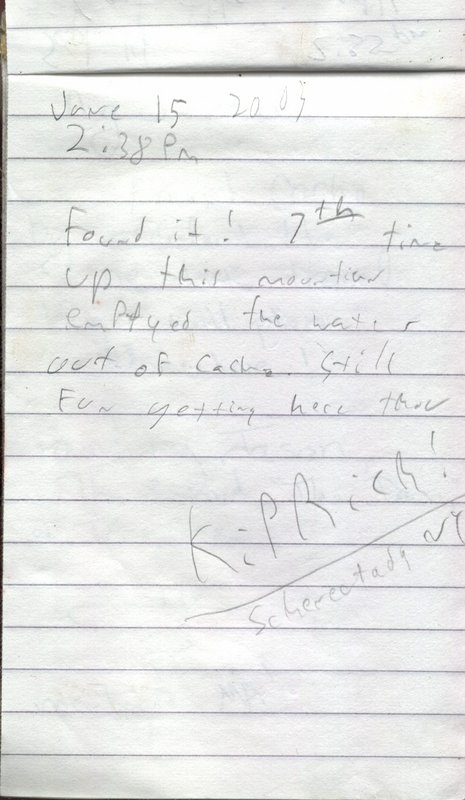 5:32
June 15 2003
2:38 Pm
Found it! 7th time
up this mountian
emptyed the water
out of cache. Still
Fun getting here thou
KipRich!
Schenectady NY